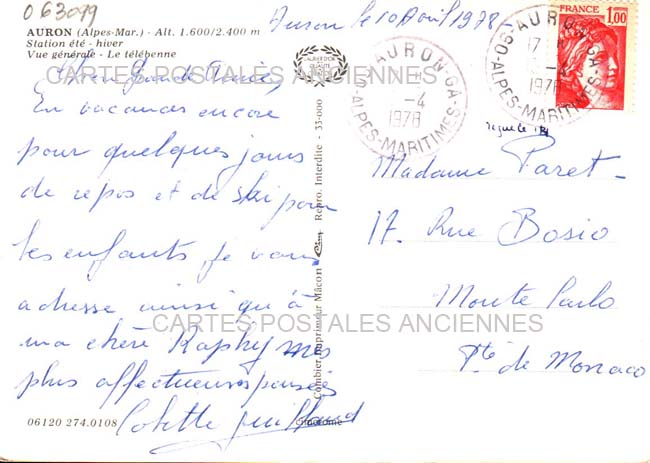 063099
AURON (Alpes-Mar.) - Alt. 1.600/2.400 m
Station été - hiver
Vue générale - Le télébenne
Auron le 10 Avril 1978 -
grande Amie,
En vacances encore
pour quelques jours
de repos et de ski pour
les enfants, je vous
adresse ainsi qu'à
ma chère Raphy mes
plus affectueuses pensées
Colette
06120 274.0108
Combier Imprimeur Mâcon Cim Repro. Interdite - 33-000
FRANCE 1,00
06-AURON-GA
-4
1978
ALPES-MARITIMES
06-AURON-GA
17
-4
1978
ALPES-MARITIMES
reçue le
Madame Paret -
17. Rue Bosio
Monte Carlo
Pté de Monaco
CARTES POSTALES ANCIENNES
CARTES POSTALES ANCIENNES